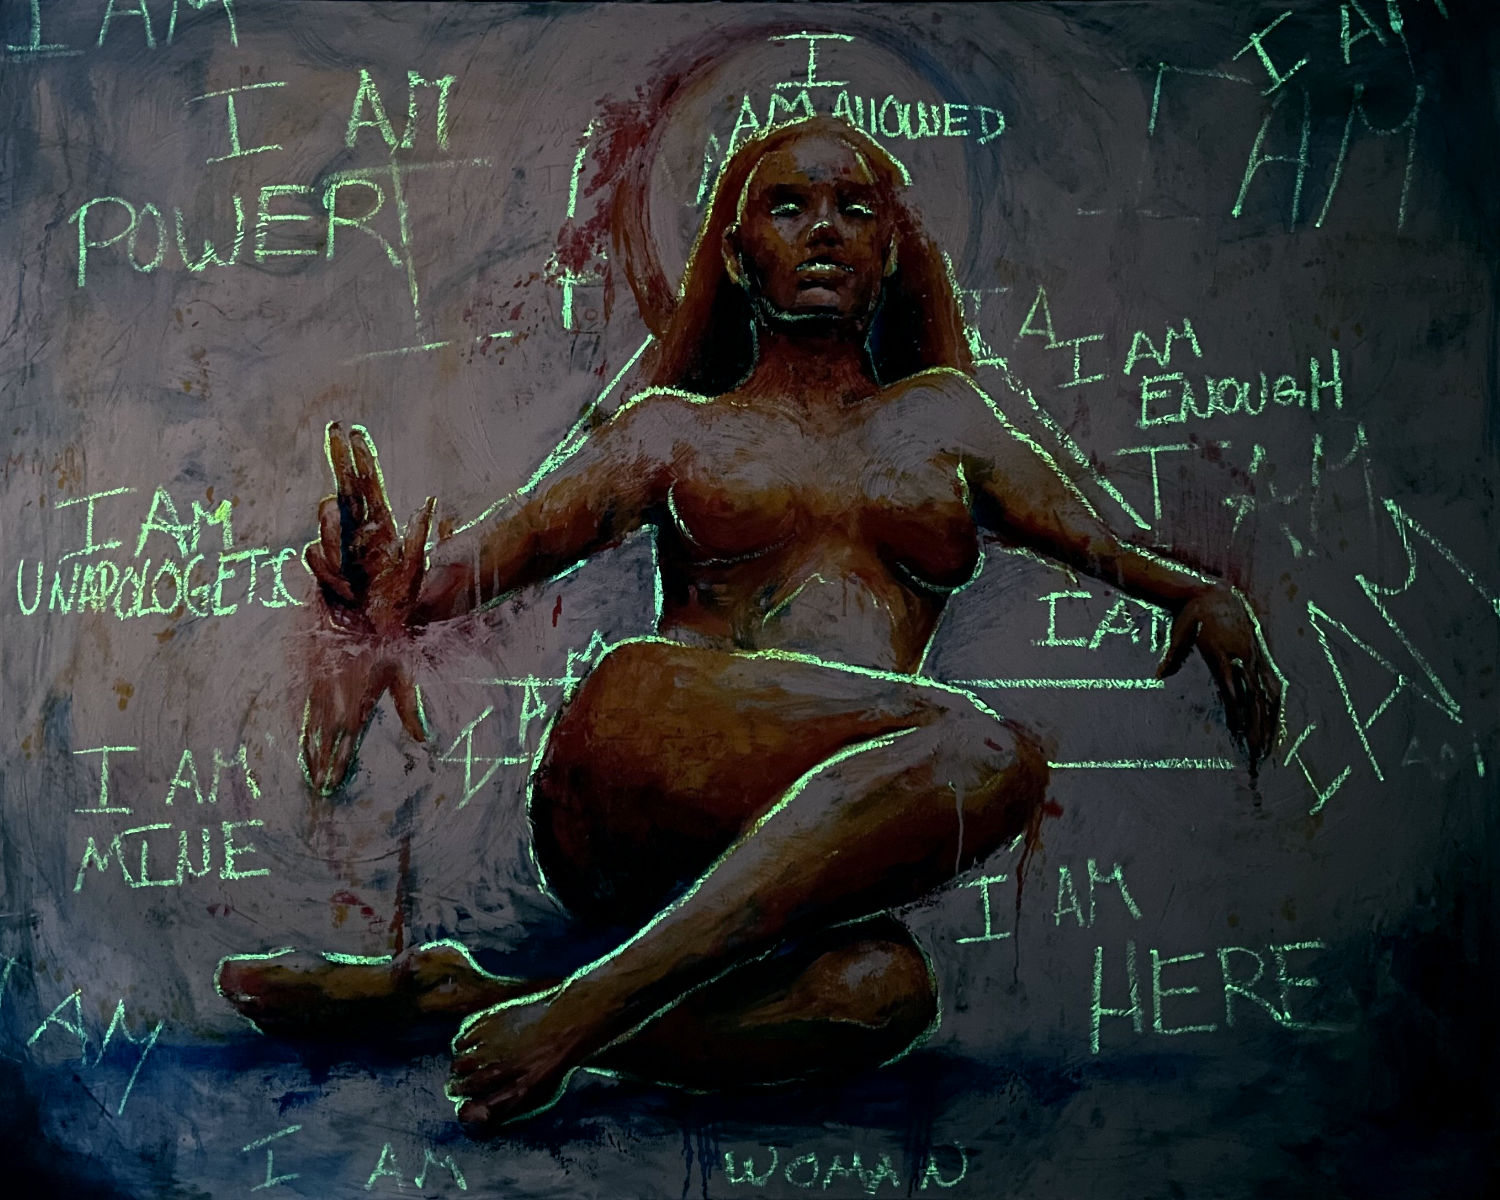 I AM
I AM
POWER
I
AM ALLOWED
I AM
AM
I A
I AM
ENOUGH
I AM
I AM
UNAPOLOGETIC
I AM
I AM
I AM
I AM
MINE
I AM
HERE
AM
I AM WOMAN